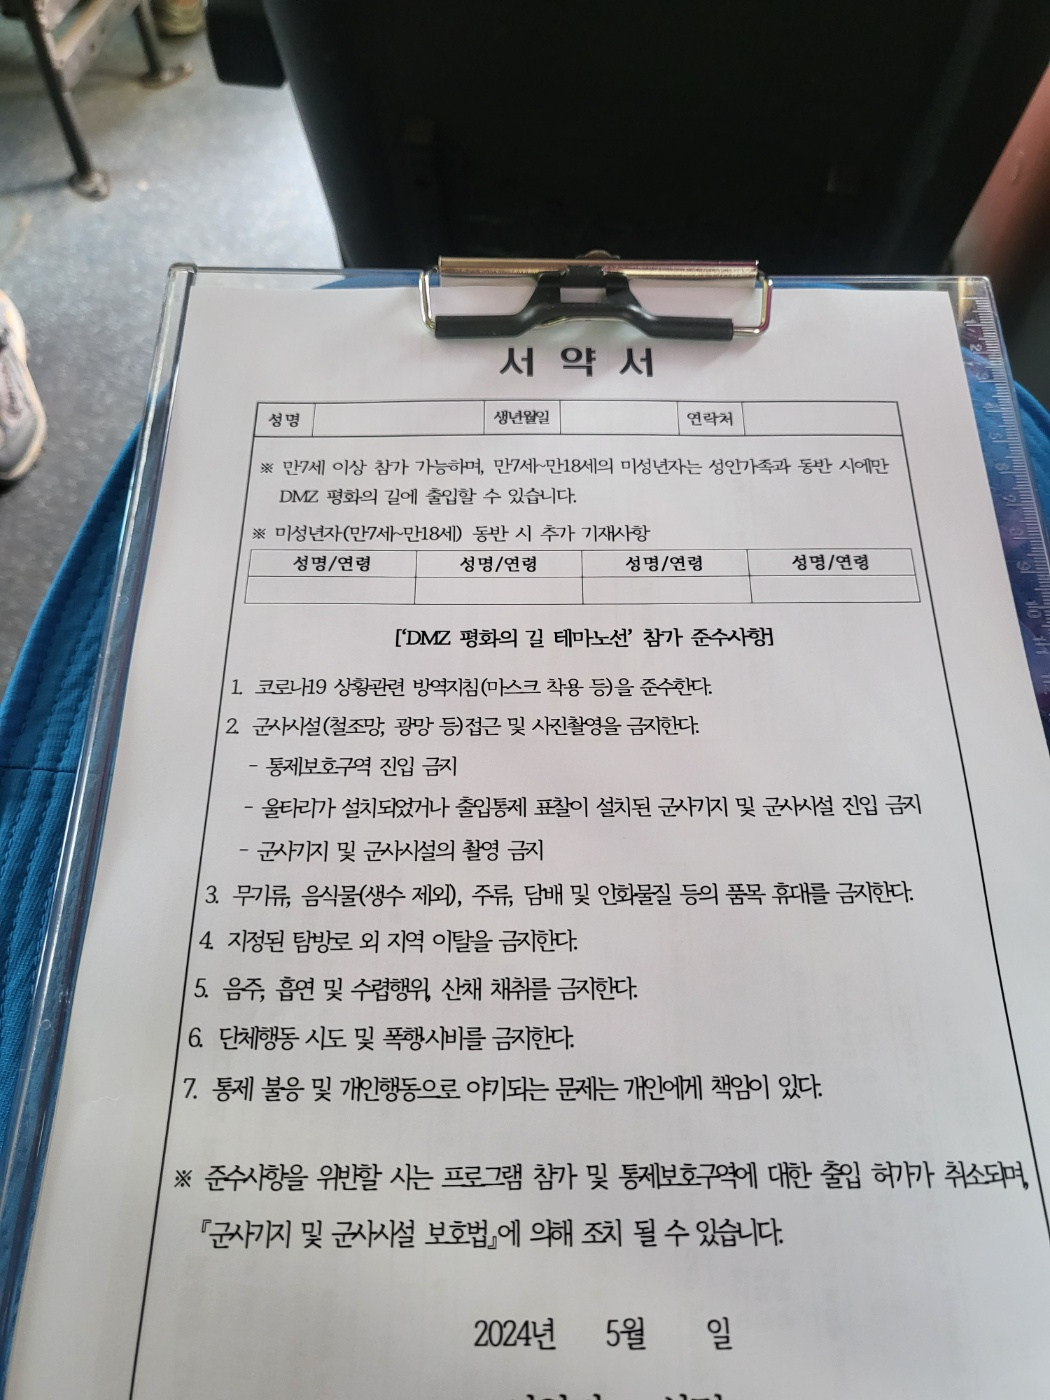 서 약 서
성명 생년월일 연락처
※ 만7세 이상 참가 가능하며, 만7세~만18세의 미성년자는 성인가족과 동반 시에만
DMZ 평화의 길에 출입할 수 있습니다.
※ 미성년자(만7세~만18세) 동반 시 추가 기재사항
성명/연령 성명/연령 성명/연령 성명/연령
['DMZ 평화의 길 테마노선' 참가 준수사항]
1. 코로나19 상황관련 방역지침(마스크 착용 등)을 준수한다.
2. 군사시설(철조망, 광망 등)접근 및 사진촬영을 금지한다.
- 통제보호구역 진입 금지
- 울타리가 설치되었거나 출입통제 표찰이 설치된 군사기지 및 군사시설 진입 금지
- 군사기지 및 군사시설의 촬영 금지
3. 무기류, 음식물(생수 제외), 주류, 담배 및 인화물질 등의 품목 휴대를 금지한다.
4. 지정된 탐방로 외 지역 이탈을 금지한다.
5. 음주, 흡연 및 수렵행위, 산채 채취를 금지한다.
6. 단체행동 시도 및 폭행·시비를 금지한다.
7. 통제 불응 및 개인행동으로 야기되는 문제는 개인에게 책임이 있다.
※ 준수사항을 위반할 시는 프로그램 참가 및 통제보호구역에 대한 출입 허가가 취소되며,
『군사기지 및 군사시설 보호법』에 의해 조치 될 수 있습니다.
2024년 5월 일